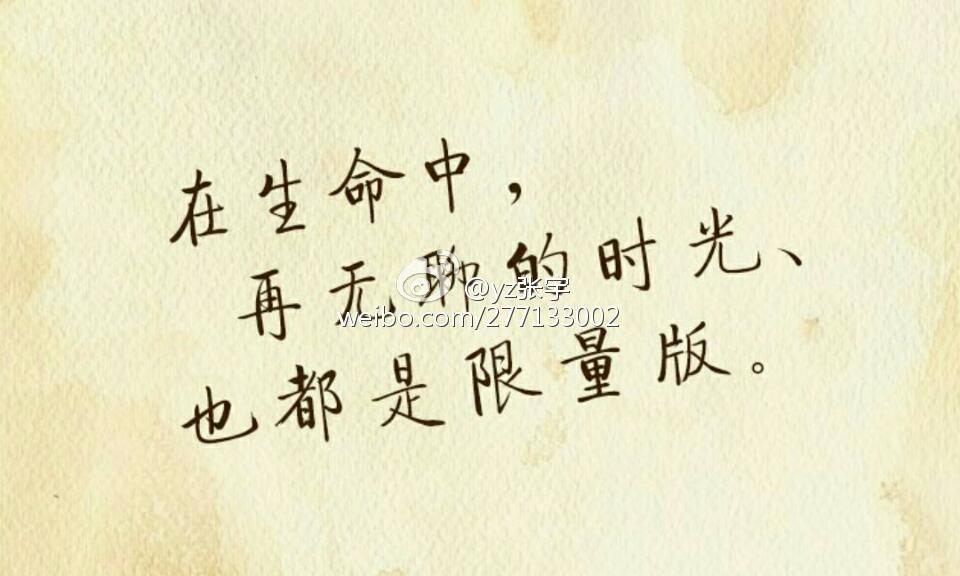 在生命中，
再无聊的时光、
@yz张宇
weibo.com/277133002
也都是限量版。